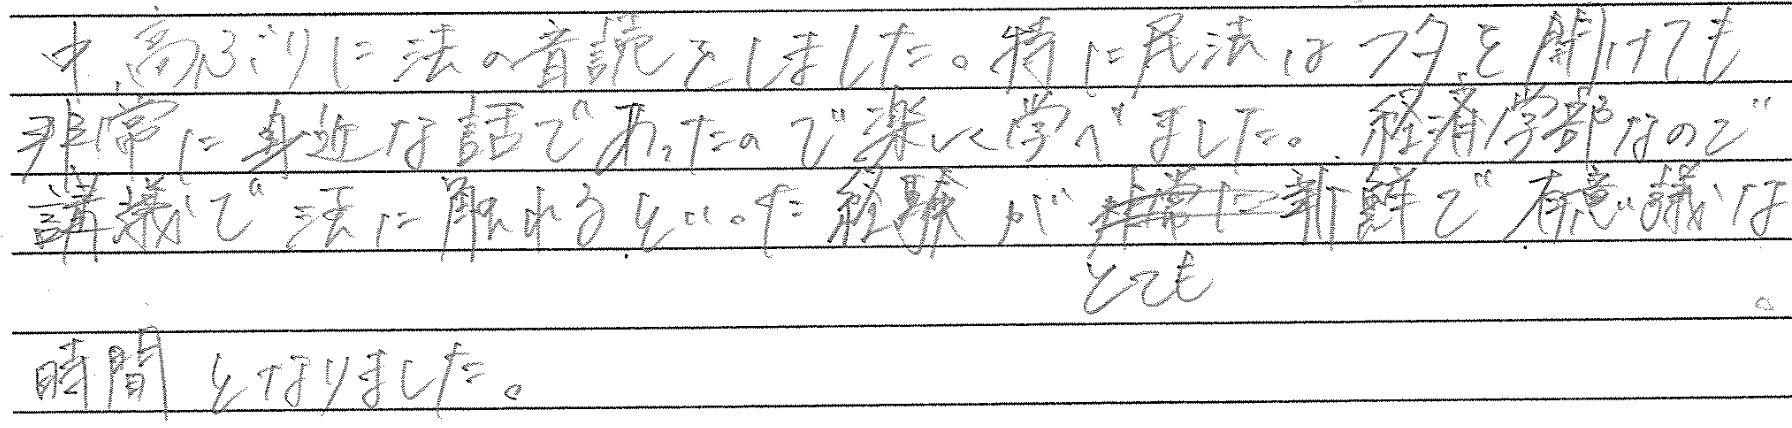 中、高ぶりに法の音読をしました。特に民法はフタを開けても
非常に身近な話であったので楽しく学べました。経済学部なので
講議で法に触れるといった経験が非常に新鮮で有意議な
とても
。
時間となりました。